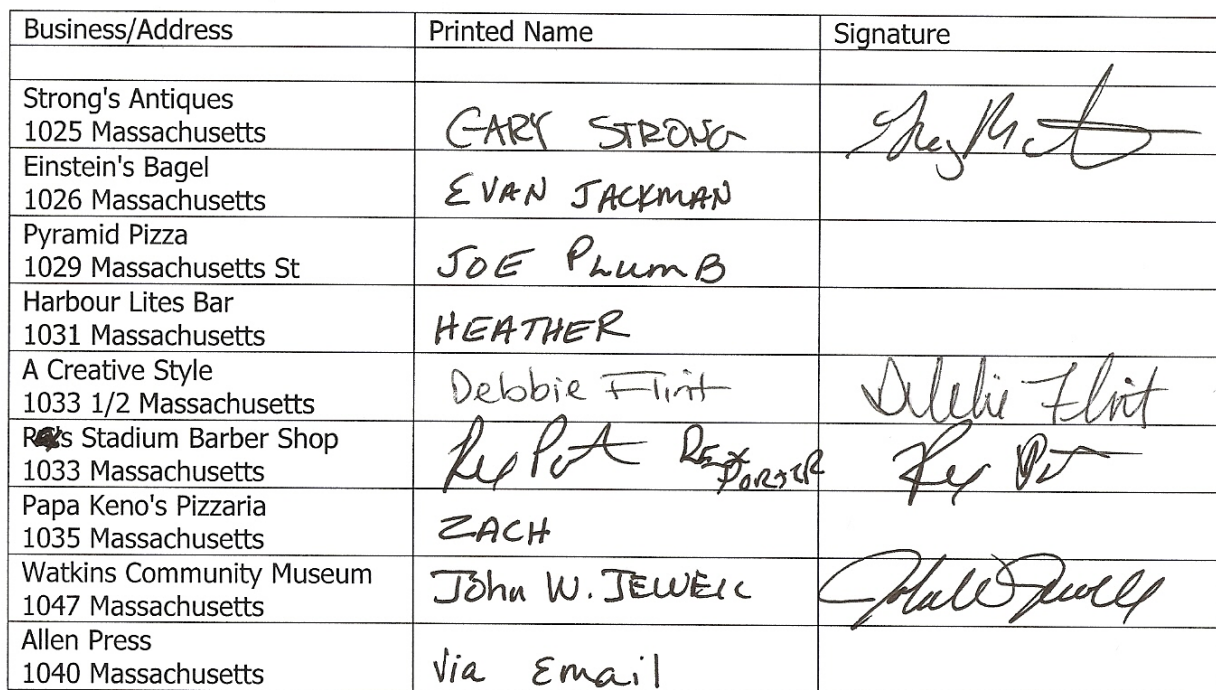 Business/Address Printed Name Signature
Strong's Antiques
1025 Massachusetts GARY STRONG
Einstein's Bagel
1026 Massachusetts EVAN JACKMAN
Pyramid Pizza
1029 Massachusetts St JOE PLUMB
Harbour Lites Bar
1031 Massachusetts HEATHER
A Creative Style
1033 1/2 Massachusetts Debbie Flint Debbie Flint
Stadium Barber Shop
1033 Massachusetts Rex Port REX PORTER Rex Pt
Papa Keno's Pizzaria
1035 Massachusetts ZACH
Watkins Community Museum
1047 Massachusetts John W. JEWELL John W Jewell
Allen Press
1040 Massachusetts Via Email